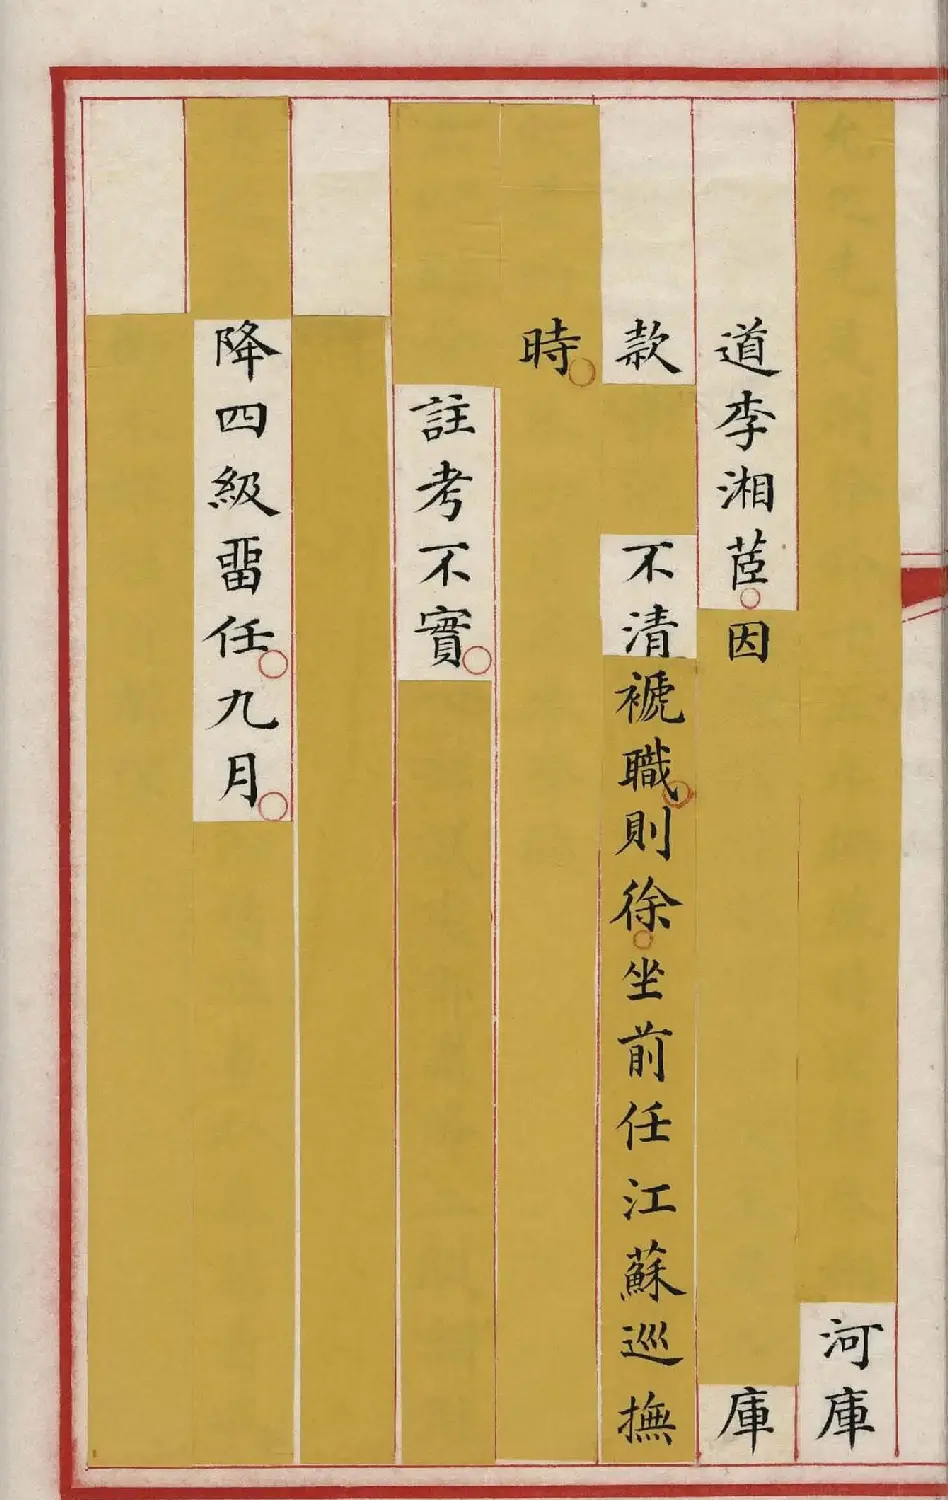 河庫
道李湘茝因庫
款不清褫職則徐坐前任江蘇巡撫
時
註考不實
降四級畱任九月